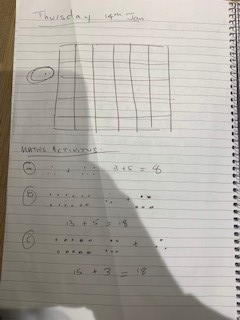 Thursday 14th Jan
MATHS ACTIVITIES
A + 3+5 = 8
B +
13 + 5 = 18
C +
15 + 3 = 18